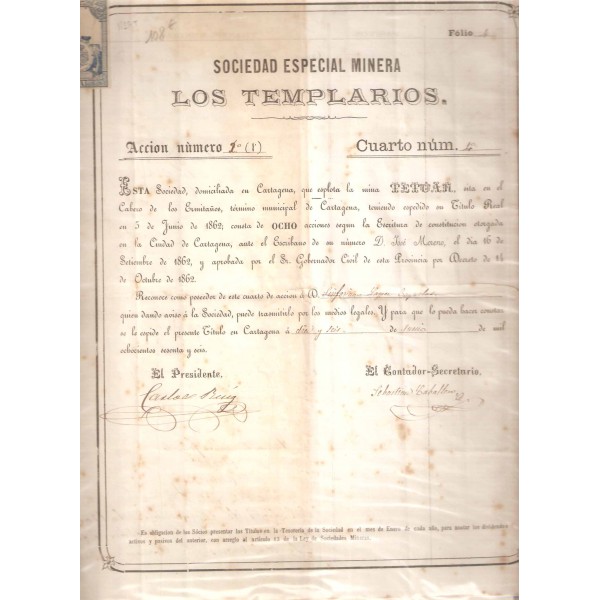 1088
Folio
SOCIEDAD ESPECIAL MINERA
LOS TEMPLARIOS.
Accion número 1º (1º)
Cuarto núm. 4
ESTA Sociedad, domiciliada en Cartagena, que esplota la mina TETUAN, sita en el
Cabezo de los Ermitaños, término municipal de Cartagena, teniendo espedido su Título Real
en 5 de Junio de 1862; consta de OCHO acciones segun la Escritura de constitucion otorgada
en la Ciudad de Cartagena, ante el Escribano de su número D. José Moreno, el dia 16 de
Setiembre de 1862, y aprobada por el Sr. Gobernador Civil de esta Provincia por Decreto de 14
de Octubre de 1862.
Reconoce como poseedor de este cuarto de accion á D.
quien dando aviso á la Sociedad, puede trasmitirlo por los medios legales. Y para que lo pueda hacer constar
se le espide el presente Título en Cartagena á diez y seis de Junio de mil
ochocientos sesenta y seis.
El Presidente.
El Contador-Secretario.
Carlos Ruiz
Sebastian Caballero
Es obligacion de los Sócios presentar los Títulos en la Tesorería de la Sociedad en el mes de Enero de cada año, para anotar los dividendos
activos y pasivos del anterior, con arreglo al artículo 12 de la Ley de Sociedades Mineras.